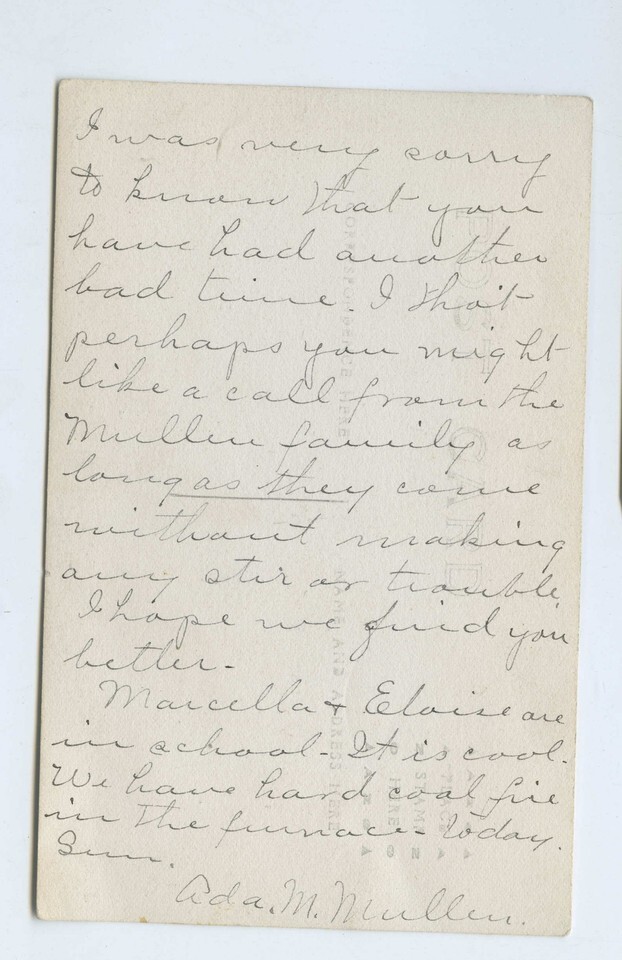 I was very sorry
to know that you
have had another
bad time. I thot
perhaps you might
like a call from the
Mullen family as
long as they come
without making
any stir or trouble.
I hope we find you
better-
Marcella & Eloise are
in school- It is cool.
We have hard coal fire
in the furnace today.
Sun.
Ada. M. Mullen.
POST CARD
CORRESPONDENCE HERE
NAME AND ADDRESS HERE
PLACE
STAMP
HERE